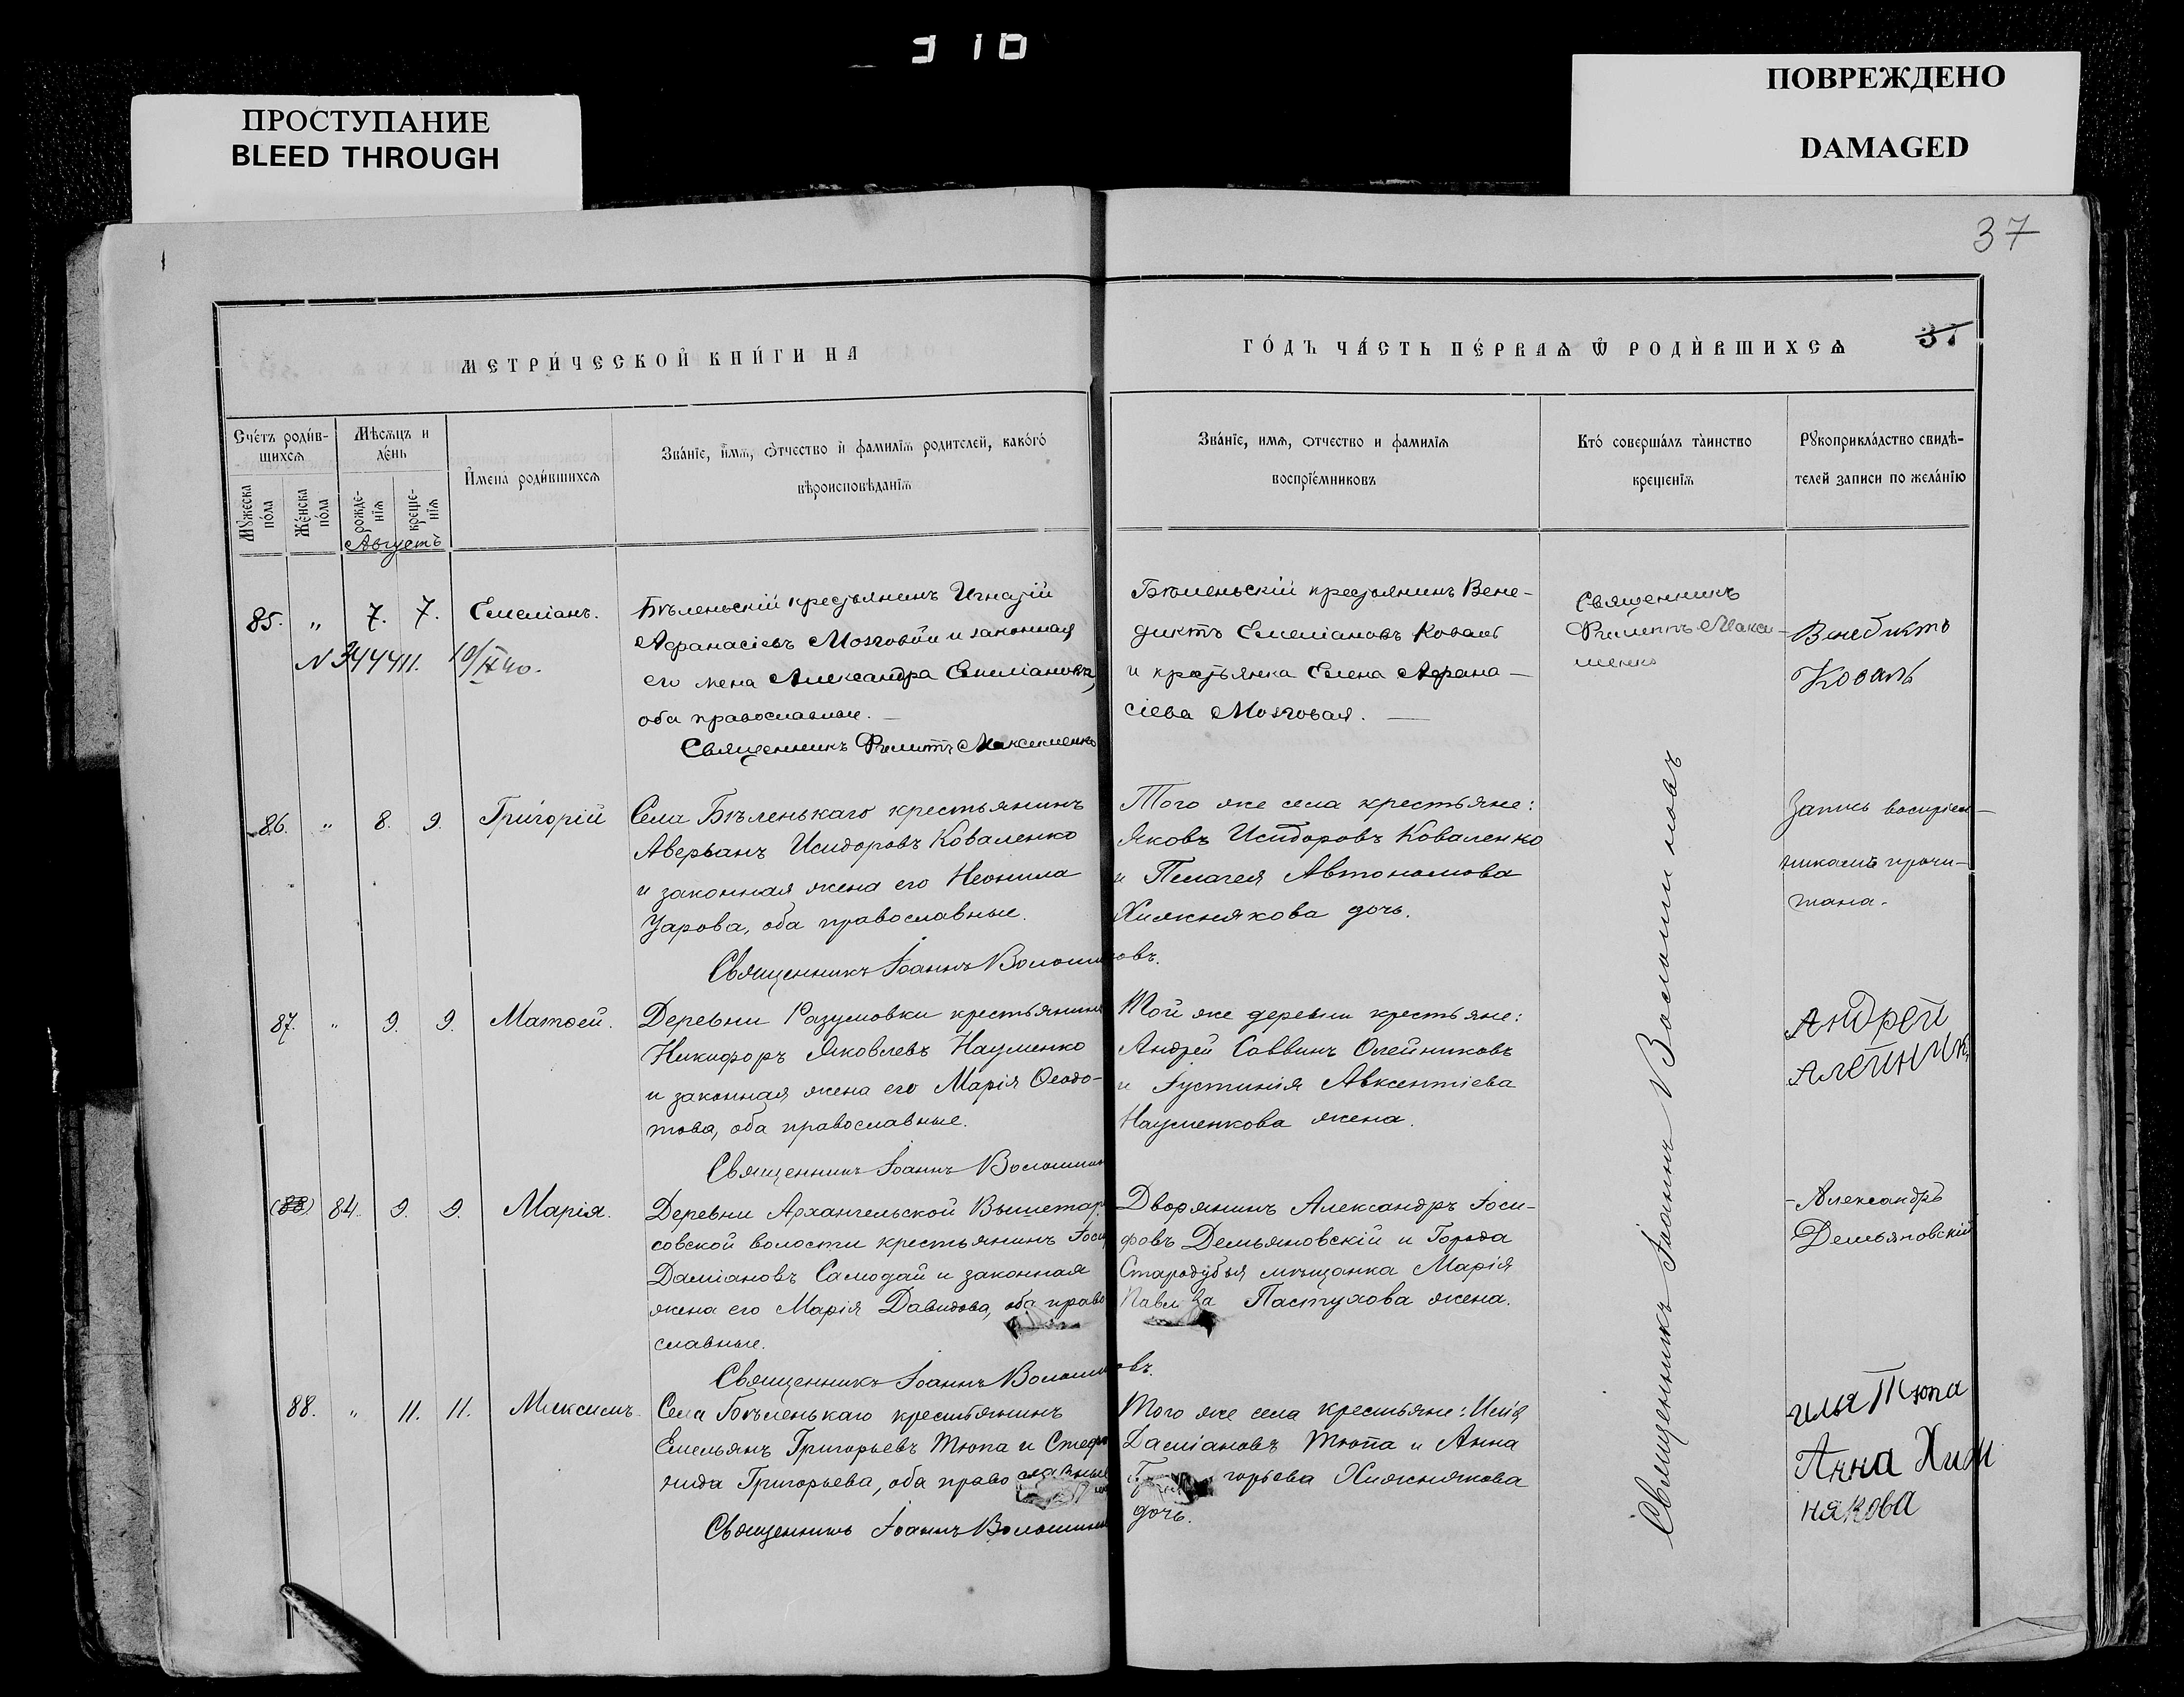 310
ПРОСТУПАНИЕ
BLEED THROUGH
ПОВРЕЖДЕНО
DAMAGED
37
МЕТРИ́ЧЕСКОЙ КНИ́ГИ НА
ГО́ДЪ ЧА́СТЬ ПЕ́РВАѦ Ѿ РОДИ́ВШИХСѦ
37
Сче́тъ роди́в-
шихсѧ
Мꙋжеска по́ла
Же́нска по́ла
Мѣсѧцъ и
де́нь
рожде-
нїѧ
креще-
нїѧ
Августъ
И҆мена̀ роди́вшихсѧ
Зва́нїе, и҆мѧ, ѻ҆тчество и҆ фамилїѧ родителей, како́гѡ
вѣроисповѣданїѧ
Зва́нїе, имѧ, отчество и фамилїѧ
воспрїе́мниковъ
Кто́ соверша́лъ та̀инство
крещенїѧ
Рꙋкоприкла́дство свидѣ-
телей записи по жела́нїю
85. " 7. 7. Емеліанъ.
N 344411. 10/IX 40.
Бѣленьскій крестьянинъ Игнатій
Афанасіевъ Мозговой и законная
его жена Александра Емеліанова,
оба православные.
Священникъ Филиппъ Максименко
Бѣленьскій крестьянинъ Вене-
диктъ Емеліановъ Коваль
и крестьянка Елена Афана-
сіева Мозговая.
Священникъ
Филиппъ Макси-
менко
Венедиктъ
Коваль
86. " 8. 9. Григорій
Села Бѣленькаго крестьянинъ
Аверьянъ Исидоровъ Коваленко
и законная жена его Неонила
Уарова, оба православные.
Священникъ Іоаннъ Волошиновъ.
Того же села крестьяне:
Яковъ Исидоровъ Коваленко
и Пелагея Автономова
Хижнякова дочь.
Запись воспріем-
никамъ прочи-
тана.
87. " 9. 9. Матѳей.
Деревни Разумовки крестьянинъ
Никифоръ Яковлевъ Науменко
и законная жена его Марія Ѳеодо-
това, оба православные.
Священникъ Іоаннъ Волошин
Той же деревни крестьяне:
Андрей Саввинъ Олейниковъ
и Іустинія Авксентіева
Науменкова жена.
Андрей
Алейник
(88) 84. 9. 9. Марія.
Деревни Архангельской Вышетар
совской волости крестьянинъ Іоси
Даміановъ Самодай и законная
жена его Марія Давидова, оба право
славные.
Священникъ Іоаннъ Волошиновъ.
Дворянинъ Александръ Іоси-
фовъ Демьяновскій и Города
Стародубья мѣщанка Марія
Павлова Пастухова жена.
Александръ
Демьяновскій
88. " 11. 11. Максимъ.
Села Бѣленькаго крестьянинъ
Емельянъ Григорьевъ Тюпа и Стефа
нида Григорьева, оба православные
Священникъ Іоаннъ Волошин
Того же села крестьяне: Илія
Даміановъ Тюпа и Анна
Григорьева Хижнякова
дочь.
Священникъ Іоаннъ Волошиновъ
илья Тюпа
Анна Хиж
някова